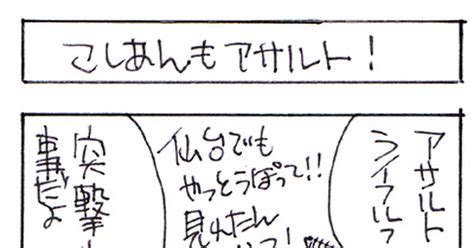 こしあんもアサルト!
アサルト
ライフル?
仙台でも
やっとうぱって!!
見れたん
突撃
事だよ